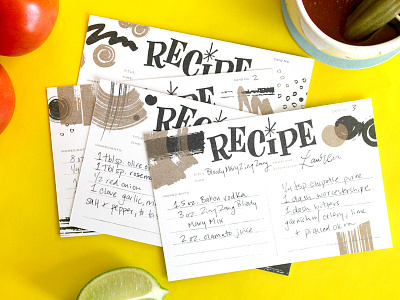 RECIPE
RECIPE
2
INGREDIENTS
1 tblsp. olive
1 tblsp. rosem
1/2 red onion
1 clove garlic,
salt + pepper, to
RECIPE
3
Bloody Mary Zing Zang
Lauren
INGREDIENTS
1.5 oz. Baton vodka
3 oz. Zing Zang Bloody
Mary Mix
2 oz. clamato juice
1/4 tsp chipotle puree
1 dash worcestershire
1 dash bitters
garnish w/ celery, lime
+ pickled okra